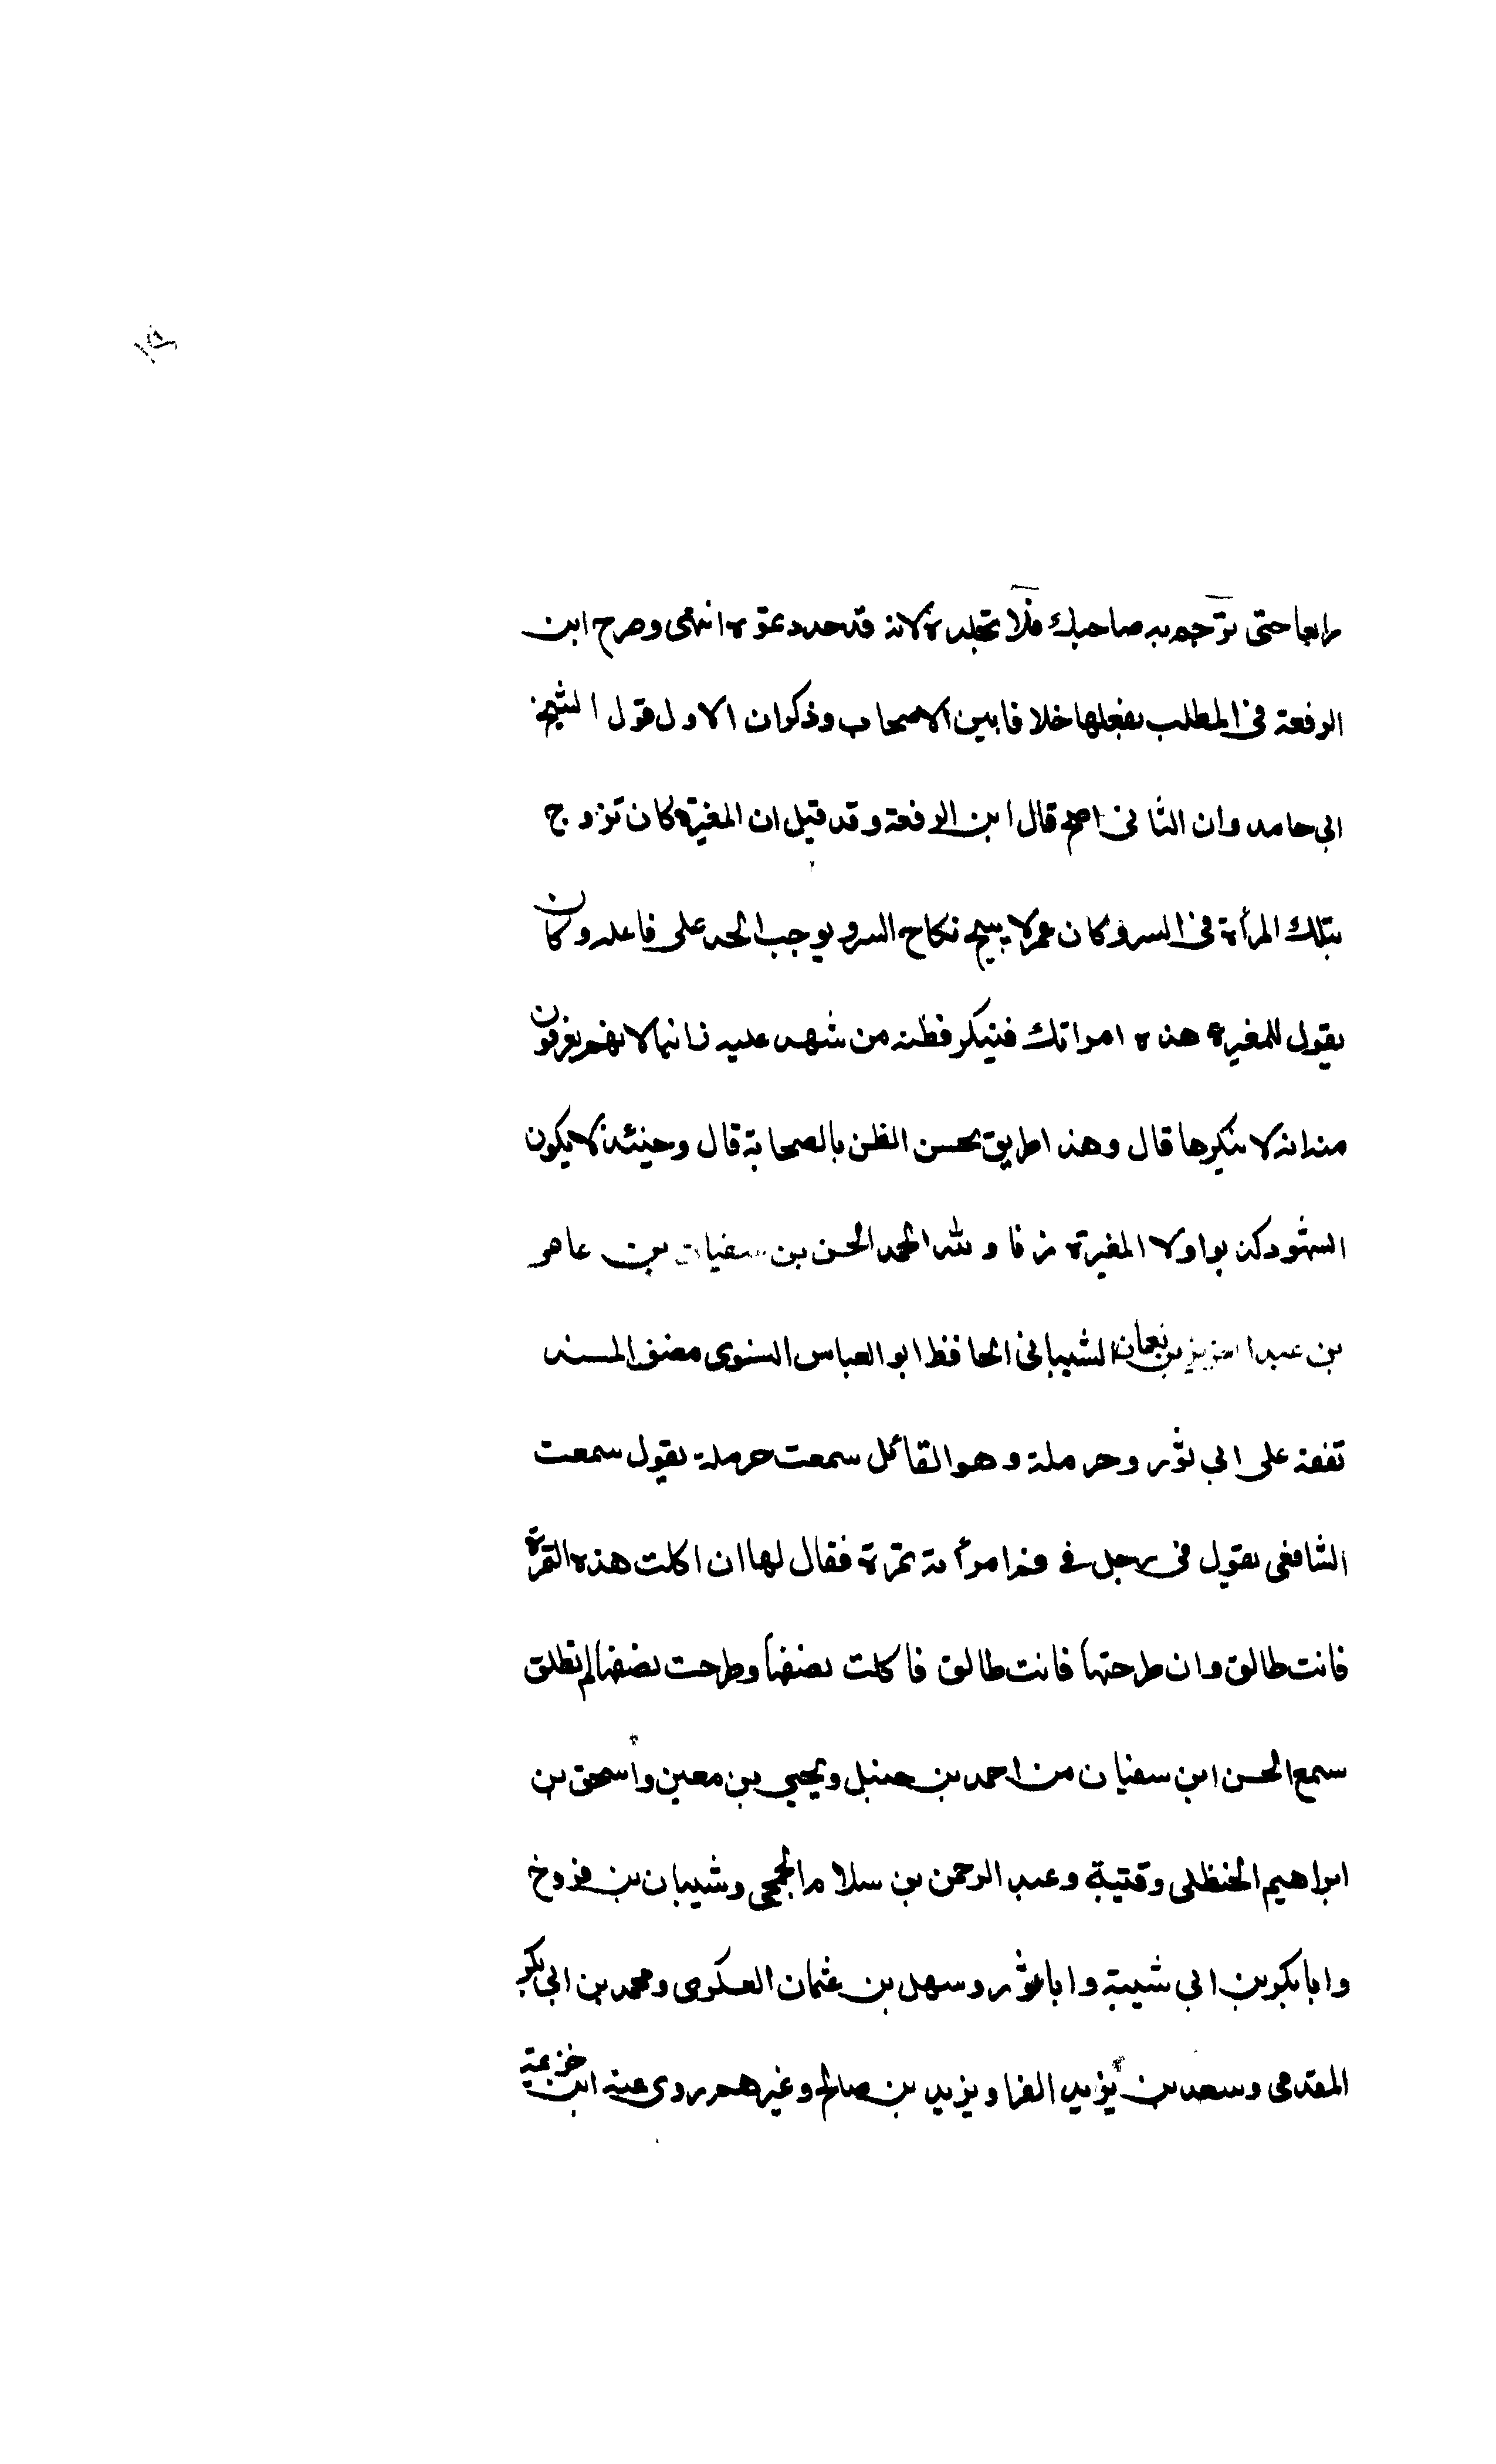 رابعا حتى ترجم به صاحبك فلا تجلده لانه قد حد دعوه انتهى وصرح ابن
الرفعة في المطلب بفعلها خلافا بين الاصحاب وذكر ان الاول قول الشيخ
ابي حامد وان الثاني اصح قال ابن الرفعة وقد قيل ان المغيرة كان تزوج
بتلك المرأة في السر وكان عمر لا يبيح نكاح السر ويوجب الحد على فاعله وكان
يقول للمغيرة هذه امراتك فينكر فظنه من شهد عليه زانيا لانهم يعرفون
منه انه لا ينكرها قال وهذا طريق يحسن الظن بالصحابة قال وحينئذ لا يكون
الشهود كذبوا ولا المغيرة زنا ولله الحمد الحسن بن سفيان بن عامر
بن عبد العزيز بن نعمان الشيباني الحافظ ابو العباس النسوي مصنف المسند
تفقه على ابي ثور وحرملة وهو القائل سمعت حرملة يقول سمعت
الشافعي يقول في رجل في فم امرأته تمرة فقال لها ان اكلت هذه التمرة
فانت طالق وان طرحتها فانت طالق فاكلت نصفها وطرحت نصفها لم تطلق
سمع الحسن ابن سفيان من احمد بن حنبل ويحيى بن معين وأسحق بن
ابراهيم الحنظلي وقتيبة وعبد الرحمن بن سلام الجمحي وشيبان بن فروخ
وابا بكر بن ابي شيبة وابا ثور وسهل بن عثمان العسكري ومحمد بن ابي بكر
المقدمي وسعد بن يزيد الفرا ويزيد بن صالح وغيرهم روى عنه ابن خزيمة